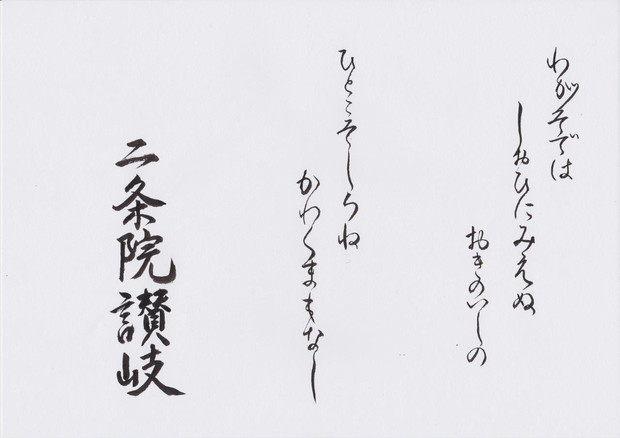 わがそでは
しおひにみえぬ
おきのいしの
ひとこそしらね
かわくまもなし
二条院讃岐